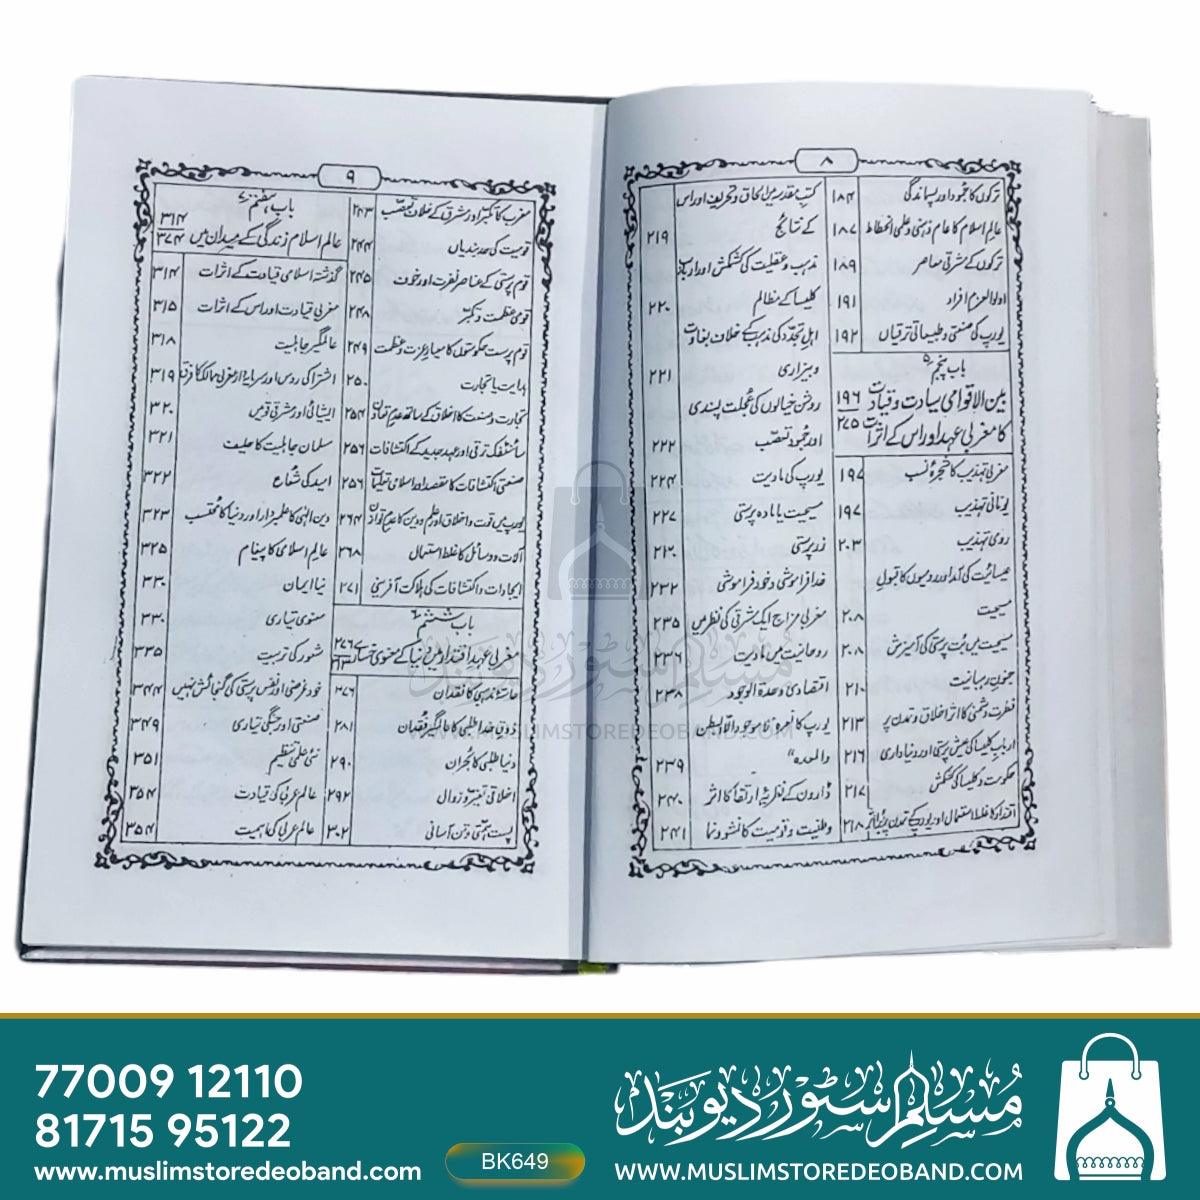 ۸
ترکوں کا جمود اور پسماندگی ۱۸۴
عالم اسلام کا عام ذہنی و علمی انحطاط ۱۸۷
ترکوں کے مشرقی معاصر ۱۸۹
اولو العزم افراد ۱۹۱
یورپ کی صنعتی و طبیعاتی ترقیاں ۱۹۲
باب پنجم
بین الاقوامی سیادت و قیادت ۱۹۶
کا مغربی عہد اور اس کے اثرات ۲۷۵
مغربی تہذیب کا شجرۂ نسب ۱۹۷
یونانی تہذیب ۱۹۷
رومی تہذیب ۲۰۳
عیسائیت کی آمد اور رومیوں کا قبولِ
مسیحیت ۲۰۸
مسیحیت میں بُت پرستی کی آمیزش ۲۰۸
جنونِ رہبانیت ۲۱۰
فطرت دشمنی کا اثر اخلاق و تمدن پر ۲۱۳
ارباب کلیسا کی عیش پرستی اور دنیاداری ۲۱۶
حکومت و کلیسا کی کشمکش ۲۱۷
اقتدار کا غلط استعمال اور یورپ کے تمدن پر اثر ۲۱۸
کتب مقدسہ میں الحاق و تحریف اور اس
کے نتائج ۲۱۹
مذہب و عقلیت کی کشمکش اور ارباب
کلیسا کے مظالم ۲۲۰
اہلِ تجدّد کی مذہب کے خلاف بغاوت
و بیزاری ۲۲۱
روشن خیالوں کی عُجلت پسندی
اور جمود تعصّب ۲۲۲
یورپ کی مادیت ۲۲۴
مسیحیت یا مادہ پرستی ۲۲۷
زر پرستی ۲۳۰
خدا فراموشی و خود فراموشی ۲۳۲
مغربی مزاج ایک مشرقی کی نظر میں ۲۳۵
روحانیت میں مادیت ۲۳۶
اقتصادی وحدۃ الوجود ۲۳۸
یورپ کا نعرہ "لا موجود الا البطن
والمعدہ" ۲۳۹
ڈارون کے نظریۂ ارتقا کا اثر ۲۴۰
وطنیت و قومیت کا نشو و نما ۲۴۱
۹
مغرب کا تکبّر اور مشرق کے خلاف تعصّب ۲۴۳
قومیت کی حد بندیاں ۲۴۴
قوم پرستی کے عناصر نفرت اور خوف ۲۴۵
قومی عظمت و تکبّر ۲۴۸
قوم پرست حکومتوں کا معیارِ عزت و عظمت ۲۴۹
ہدایت یا تجارت ۲۵۰
تجارت و صنعت کا اخلاق کے ساتھ عدم تعاون ۲۵۴
سائنٹفک ترقی اور عہد جدید کے اکتشافات ۲۵۶
صنعتی اکتشافات کا مقصد اور اسلامی تعلیمات ۲۵۶
یورپ میں قوت و اخلاق اور علم و دین کا عدم توازن ۲۶۴
آلات و وسائل کا غلط استعمال ۲۶۸
ایجادات و اکتشافات کی ہلاکت آفرینی ۲۷۱
باب ششم
مغربی عہد اقتدار میں دنیا کے معنوی خسارے ۲۷۶
۳۱۳
حاسّۂ مذہبی کا فقدان ۲۷۶
ذوقِ خدا طلبی کا عالمگیر فقدان ۲۸۱
دنیا طلبی کا بحران ۲۹۰
اخلاقی تغیّر و زوال ۲۹۲
پست ہمتی و تن آسانی ۳۰۲
باب ہفتم
عالم اسلام زندگی کے میدان میں ۳۱۴
۳۷۴
گذشتہ اسلامی قیادت کے اثرات ۳۱۴
مغربی قیادت اور اس کے اثرات ۳۱۵
عالمگیر جاہلیت ۳۱۸
اشتراکی روس اور سرمایہ دار مغربی ممالک کا فرق ۳۱۹
ایشیائی اور مشرقی قومیں ۳۲۰
مسلمان جاہلیت کا حلیف ۳۲۱
امید کی شعاع ۳۲۲
دین الٰہی کا علمبردار اور دنیا کا محتسب ۳۲۳
عالمِ اسلامی کا پیغام ۳۲۵
نیا ایمان ۳۳۰
معنوی تیاری ۳۳۰
شعور کی تربیت ۳۳۵
خود غرضی اور نفس پرستی کی گنجائش نہیں ۳۴۴
صنعتی اور جنگی تیاری ۳۴۹
نئی علمی تنظیم ۳۵۱
عالم عربی کی قیادت ۳۵۴
عالم عربی کی اہمیت ۳۵۴
مسلم سٹور دیوبند
WWW.MUSLIMSTOREDEOBAND.COM
77009 12110
81715 95122
www.muslimstoredeoband.com
BK649
مسلم سٹور دیوبند
WWW.MUSLIMSTOREDEOBAND.COM